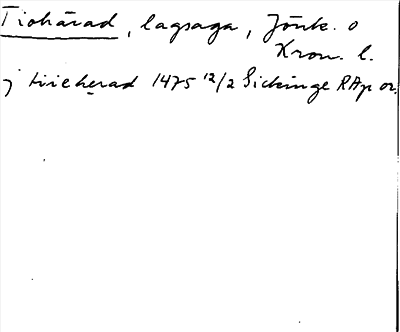 Tiohärad, lagsaga, Jönk. o
Kron. l.
j tiieherad 1475 12/2 Sickinge RAp or.